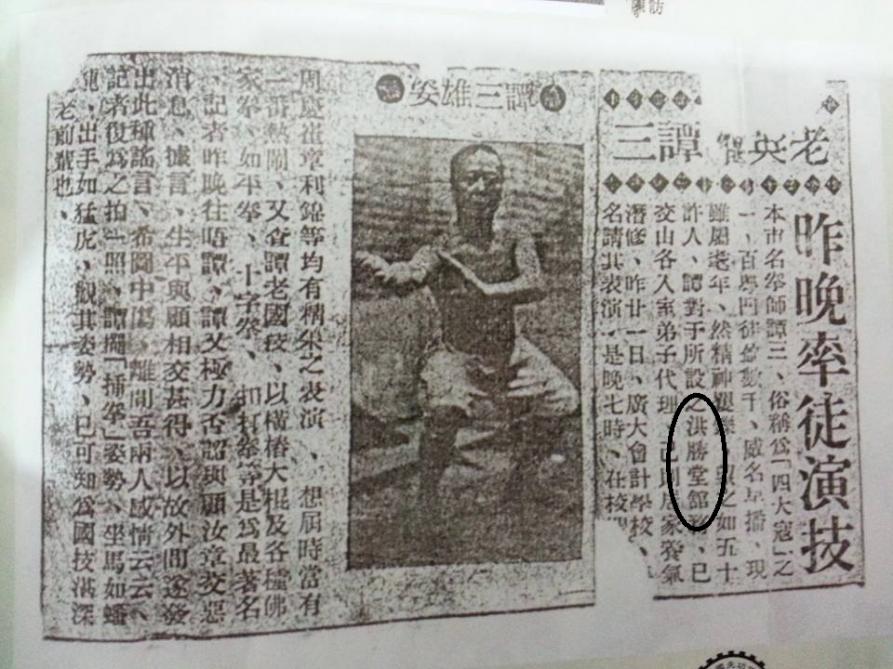 訪
老英雄譚三
昨晚率徒演技
本市名拳師譚三、俗稱為「四大寇」之
一、百粵門徒數千、威名早播、現
雖屬老年、然精神矍 之如五十
許人、譚對于所設之洪勝堂館務、已
交由各入室弟子代理、己則居家養氣
潛修、昨廿一日、廣大會計學校、
名請其表演、是晚七時、在校
譚三雄姿
周慶崔章利錦等均有精采之表演、想屆時當有
一番熱鬧、又查譚老國技、以橫椿大棍及各種佛
家拳、如平拳、十字拳、扣打拳等是為最著名
、記者昨晚往晤譚、譚又極力否認與顧汝章交惡
消息、據言、生平與顧相交甚得、以故外間遂發
出此種謠言、希圖中傷、離間吾兩人感情云云、
記者復為之拍一照、譚擺「插拳」姿勢、坐馬如蟠
龍、出手如猛虎、觀其姿勢、已可知為國技湛深
老前輩也、